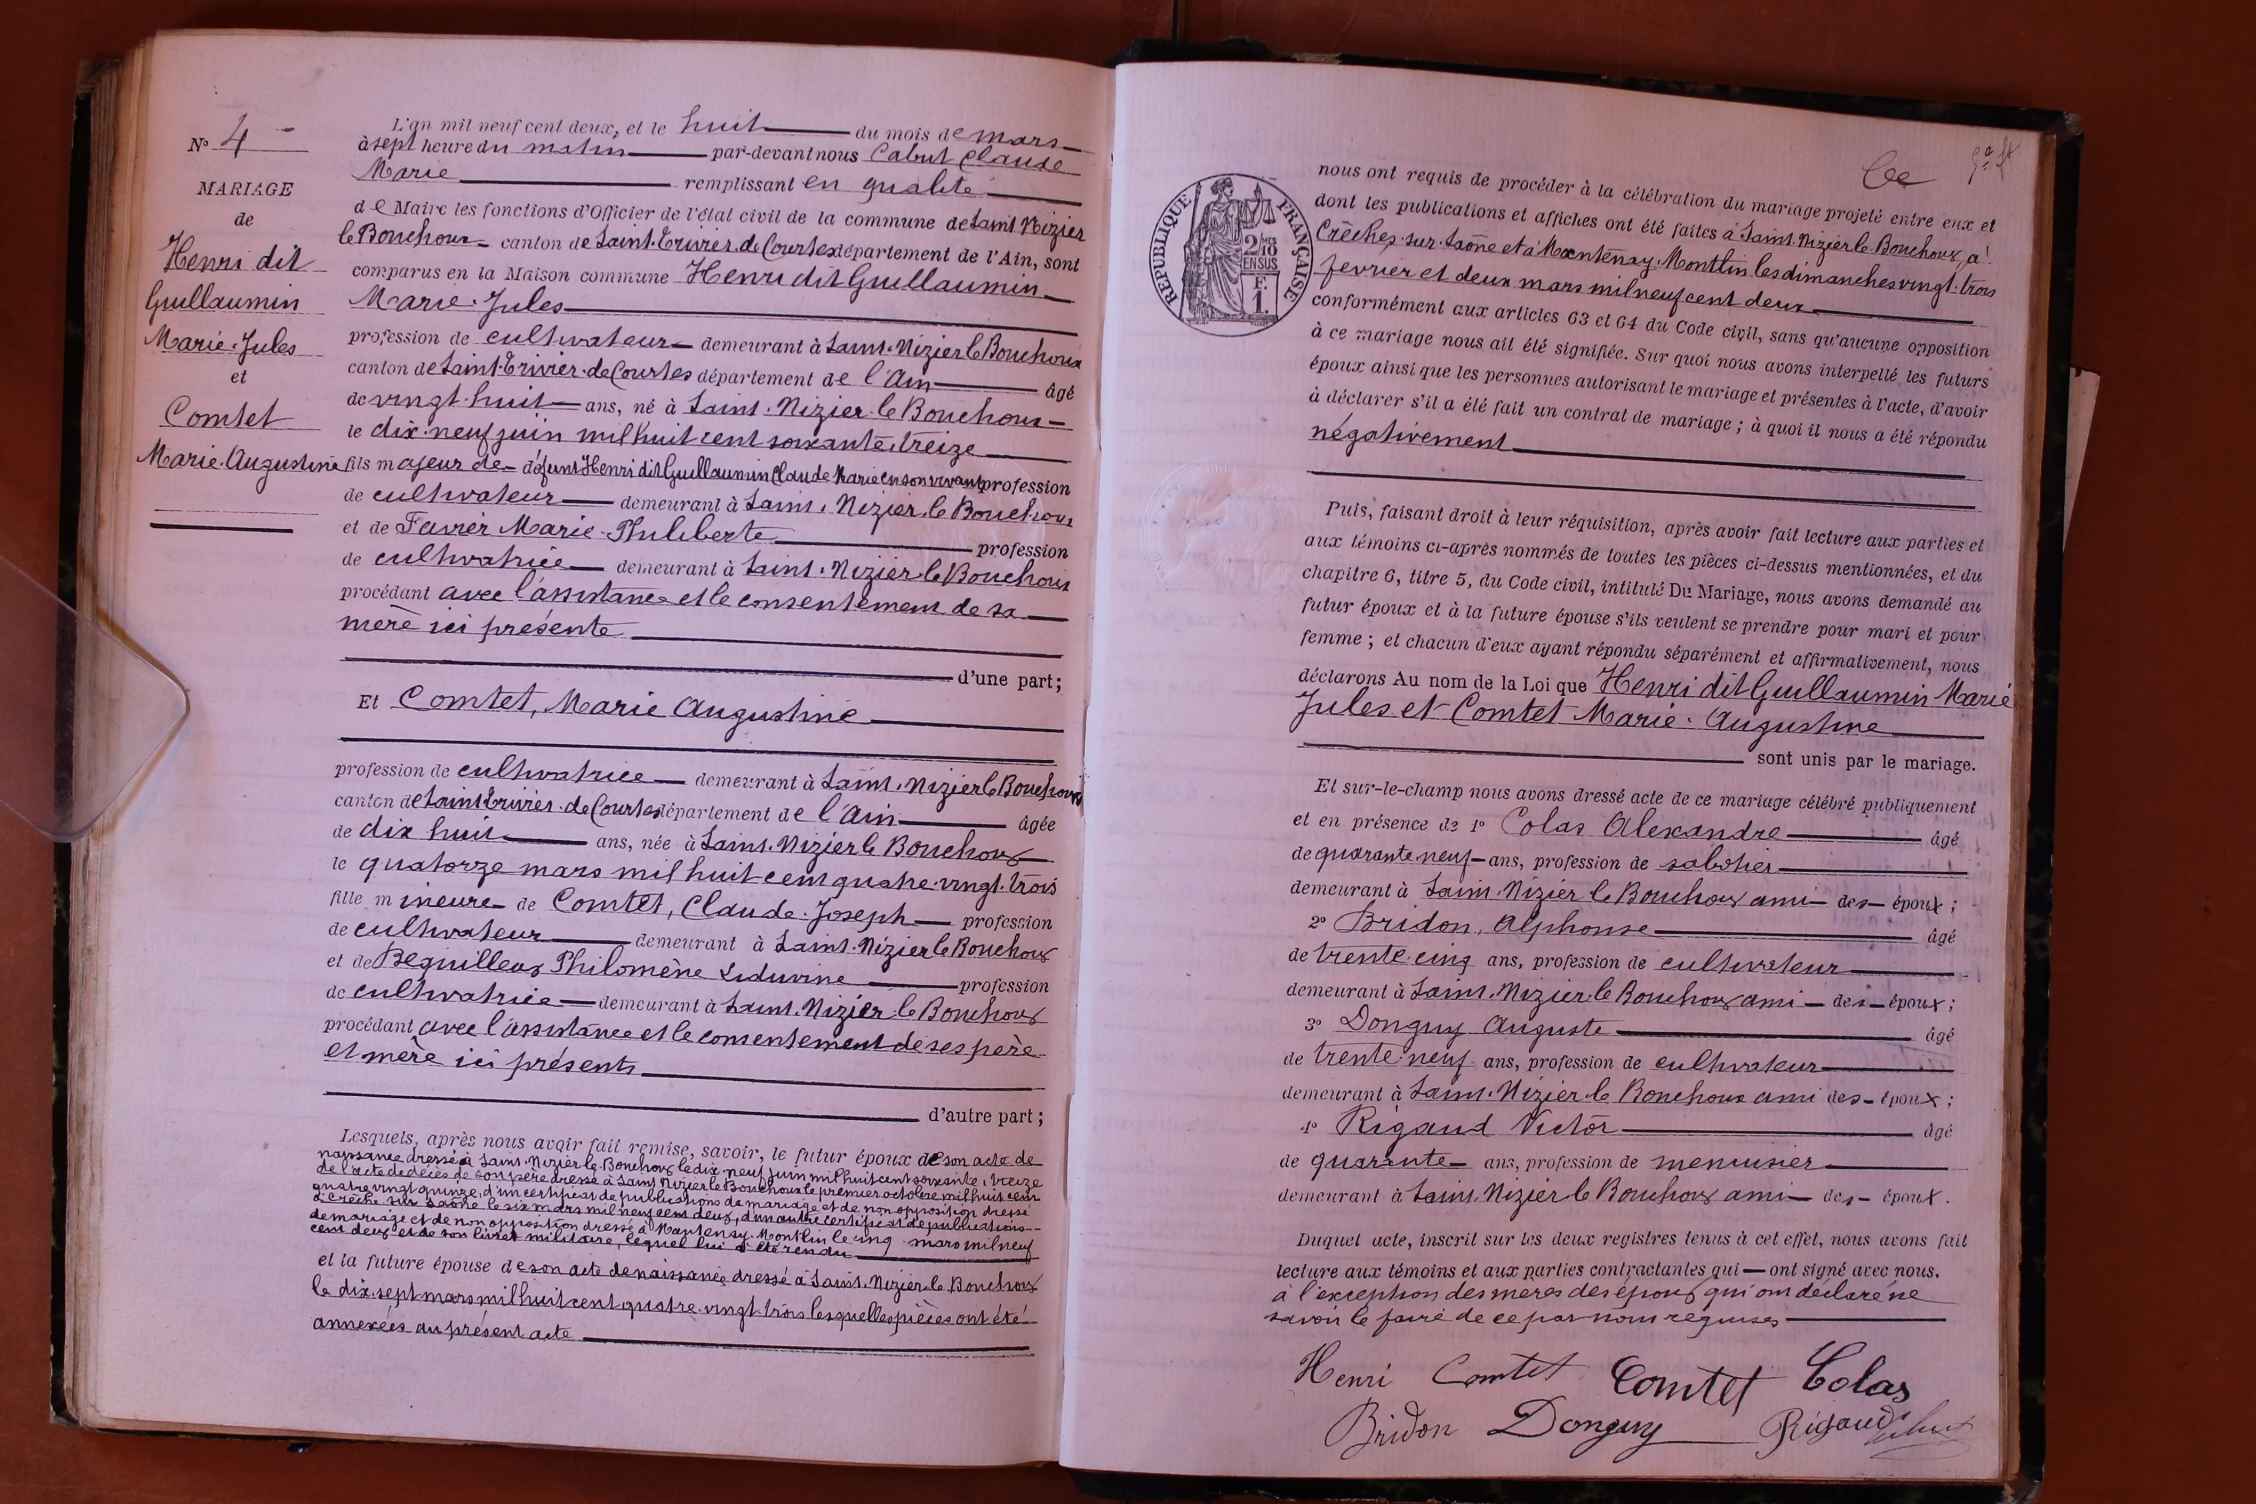 N° 4
MARIAGE
de
Henri dit
Guillaumin
Marie-Jules
et
Comtet
Marie-Augustine
L'an mil neuf cent deux, et le huit du mois de mars
à sept heure du matin par-devant nous Cabut Claude
Marie remplissant en qualité
de Maire les fonctions d'Officier de l'état civil de la commune de Saint Nizier
le Bouchoux canton de Saint-Trivier-de Courtes département de l'Ain, sont
comparus en la Maison commune Henri dit Guillaumin
Marie-Jules
profession de cultivateur demeurant à Saint-Nizier le Bouchoux
canton de Saint-Trivier-de Courtes département de l'Ain âgé
de vingt-huit ans, né à Saint-Nizier-le Bouchoux
le dix-neuf juin mil huit cent soixante-treize
fils majeur de défunt Henri dit Guillaumin Claude Marie en son vivant profession
de cultivateur demeurant à Saint-Nizier-le Bouchoux
et de Favier Marie-Philiberte profession
de cultivatrice demeurant à Saint-Nizier-le Bouchoux
procédant avec l'assistance et le consentement de sa
mère ici présente
d'une part;
Et Comtet, Marie Augustine
profession de cultivatrice demeurant à Saint-Nizier le Bouchoux
canton de Saint Trivier-de Courtes département de l'Ain âgée
de dix huit ans, née à Saint-Nizier le Bouchoux
le quatorze mars mil huit cent quatre-vingt-trois
fille mineure de Comtet, Claude-Joseph profession
de cultivateur demeurant à Saint-Nizier le Bouchoux
et de Beguilleux Philomène Liduvine profession
de cultivatrice demeurant à Saint-Nizier-le Bouchoux
procédant avec l'assistance et le consentement de ses père
et mère ici présents
d'autre part;
Lesquels, après nous avoir fait remise, savoir, le futur époux de son acte de
naissance dressé à Saint-Nizier-le-Bouchoux le dix neuf juin mil huit cent soixante-treize
de l'acte de décès de son père dressé à Saint Nizier le Bouchoux le premier octobre mil huit cent
quatre vingt quinze, d'un certificat de publications de mariage et de non opposition dressé
à Crêche-sur Saône le six mars mil neuf cent deux, d'un autre certificat de publications
de mariage et de non opposition dressé à Mantenay-Montlin le cinq mars mil neuf
cent deux et de son livret militaire, lequel lui a été rendu
et la future épouse de son acte de naissance dressé à Saint-Nizier-le Bouchoux
le dix-sept mars mil huit cent quatre-vingt-trois lesquelles pièces ont été
annexées au présent acte
RÉPUBLIQUE FRANÇAISE
2/10
EN SUS
F.
1.
nous ont requis de procéder à la célébration du mariage projeté entre eux et
dont les publications et affiches ont été faites à Saint-Nizier le Bouchoux, à
Crêches-sur-Saône et à Mantenay-Montlin les dimanches vingt-trois
fevrier et deux mars mil neuf cent deux
conformément aux articles 63 et 64 du Code civil, sans qu'aucune opposition
à ce mariage nous ait été signifiée. Sur quoi nous avons interpellé les futurs
époux ainsi que les personnes autorisant le mariage et présentes à l'acte, d'avoir
à déclarer s'il a été fait un contrat de mariage; à quoi il nous a été répondu
négativement
Puis, faisant droit à leur réquisition, après avoir fait lecture aux parties et
aux témoins ci-après nommés de toutes les pièces ci-dessus mentionnées, et du
chapitre 6, titre 5, du Code civil, intitulé Du Mariage, nous avons demandé au
futur époux et à la future épouse s'ils veulent se prendre pour mari et pour
femme; et chacun d'eux ayant répondu séparément et affirmativement, nous
déclarons Au nom de la Loi que Henri dit Guillaumin Marie
Jules et Comtet Marie-Augustine
sont unis par le mariage.
Et sur-le-champ nous avons dressé acte de ce mariage célébré publiquement
et en présence de 1° Colas Alexandre âgé
de quarante neuf ans, profession de sabotier
demeurant à Saint-Nizier le Bouchoux ami des époux;
2° Bridon, Alphonse âgé
de trente-cinq ans, profession de cultivateur
demeurant à Saint-Nizier-le Bouchoux ami des époux;
3° Donguy Auguste âgé
de trente-neuf ans, profession de cultivateur
demeurant à Saint-Nizier-le Bouchoux ami des époux;
4° Rigaud Victor âgé
de quarante ans, profession de menuisier
demeurant à Saint-Nizier le Bouchoux ami des époux.
Duquel acte, inscrit sur les deux registres tenus à cet effet, nous avons fait
lecture aux témoins et aux parties contractantes qui ont signé avec nous.
à l'exception des meres des époux qui ont déclaré ne
savoir le faire de ce par nous requises
Henri Comtet Comtet Colas
Bridon Donguy Rigaud Cabut